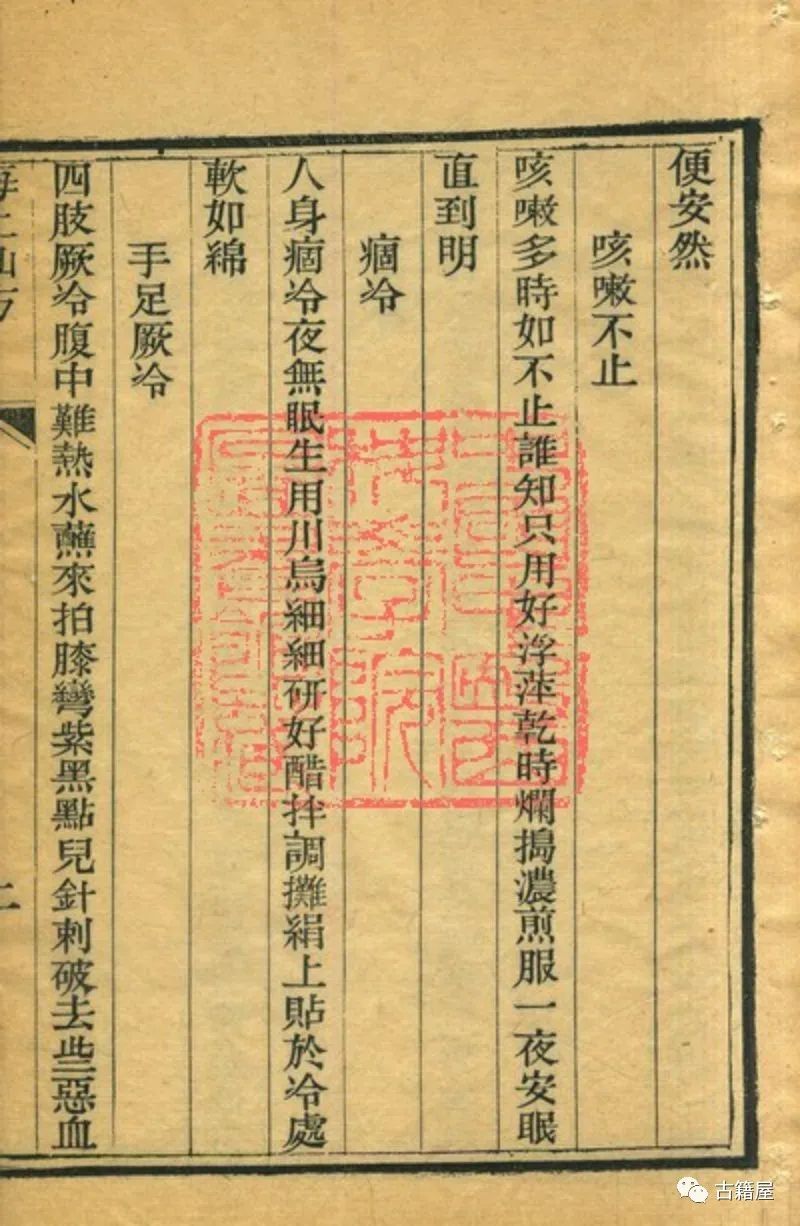 便安然
咳嗽不止
咳嗽多時如不止誰知只用好浮萍乾時爛搗濃煎服一夜安眠
直到明
痼冷
人身痼冷夜無眠生用川烏細細研好醋拌調攤絹上貼於冷處
軟如綿
手足厥冷
四肢厥冷腹中難熱水蘸來拍膝彎紫黑點兒針刺破去些惡血
海上仙方
二
古籍屋